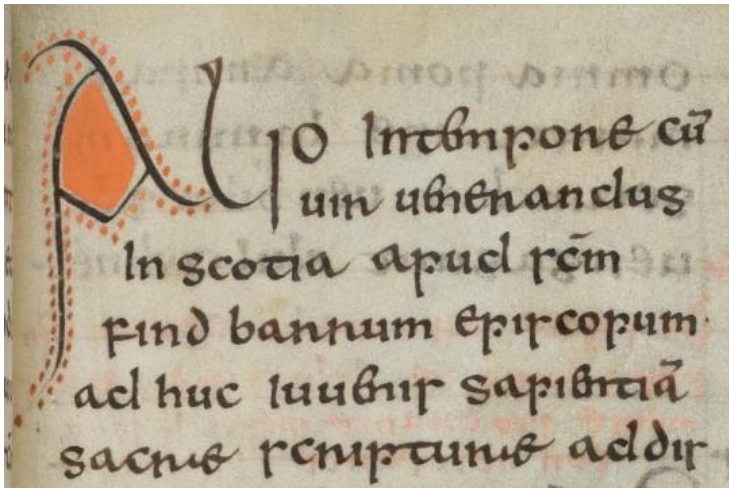 Alio intempore cū
uir uenerandus
in scotia apud scm̄
findbarrum episcopum
ad huc iuuenis sapientiā
sacrae scripturae addis